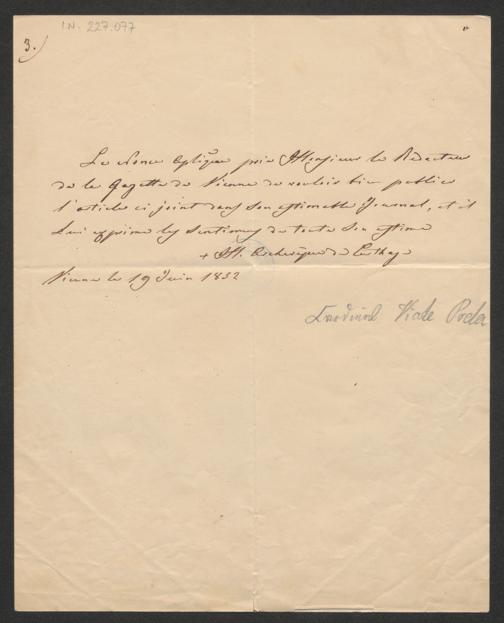 I.N. 227.077
3.
Le Nonce Aplique prie Monsieur le Rédacteur
de la Gazette de Vienne de vouloir bien publier
l'article ci joint dans son estimable Journal, et il
Lui exprime les sentimens de toute son estime
+ M. Archevêque de Carthage
Vienne le 19 Juin 1852
Cardinal Viale Prela